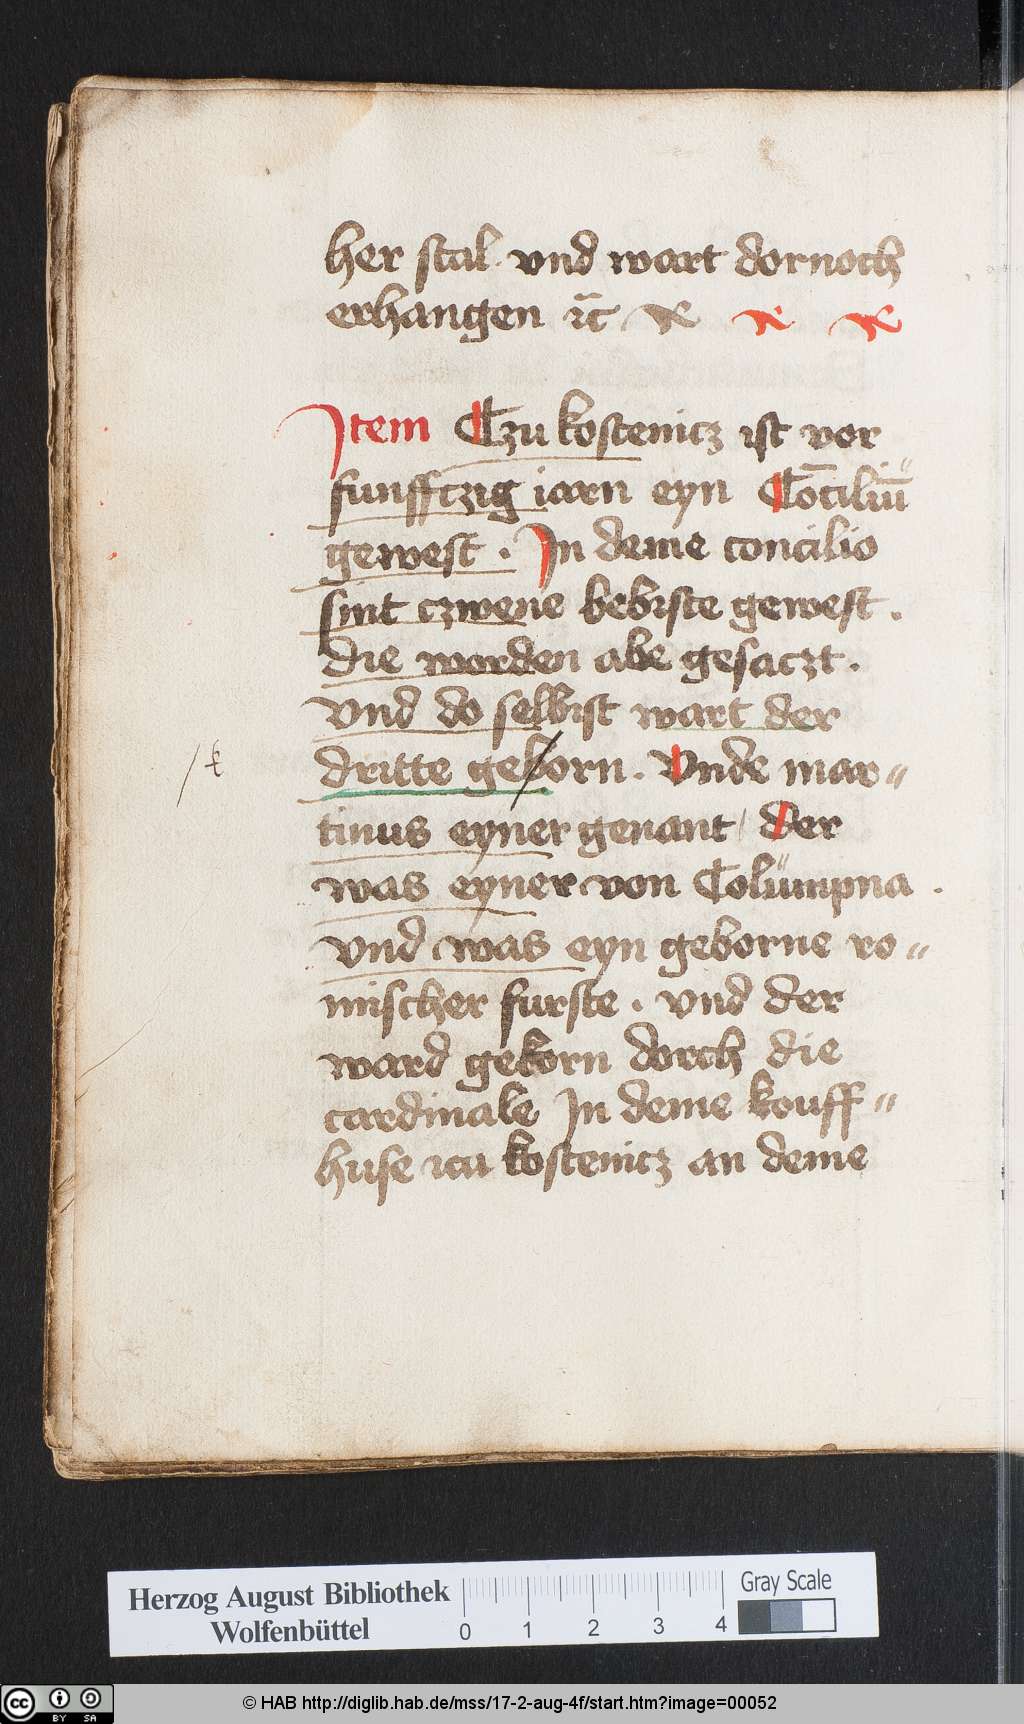 her stal vnd wart dornoch
erhangen ꝛc̄
Item Czu kostenicz ist vor
funffczig iarn eyn Co̅ciliu̅
gewest . In deme concilio
sint czwene bebiste gewest .
die worden abe gesaczt .
Vnd do selbist wart der
dritte geborn . Vnde mar〃
tinus eyner genant / der
was eyner von Columpna .
vnd was eyn geborne ro〃
mischer furste . vnd der
ward gekorn dorch die
cardinale In deme kouff〃
huse czu kostenicz an deme
/ k
Herzog August Bibliothek
Wolfenbüttel
0 1 2 3 4
Gray Scale
cc BY SA
© HAB http://diglib.hab.de/mss/17-2-aug-4f/start.htm?image=00052